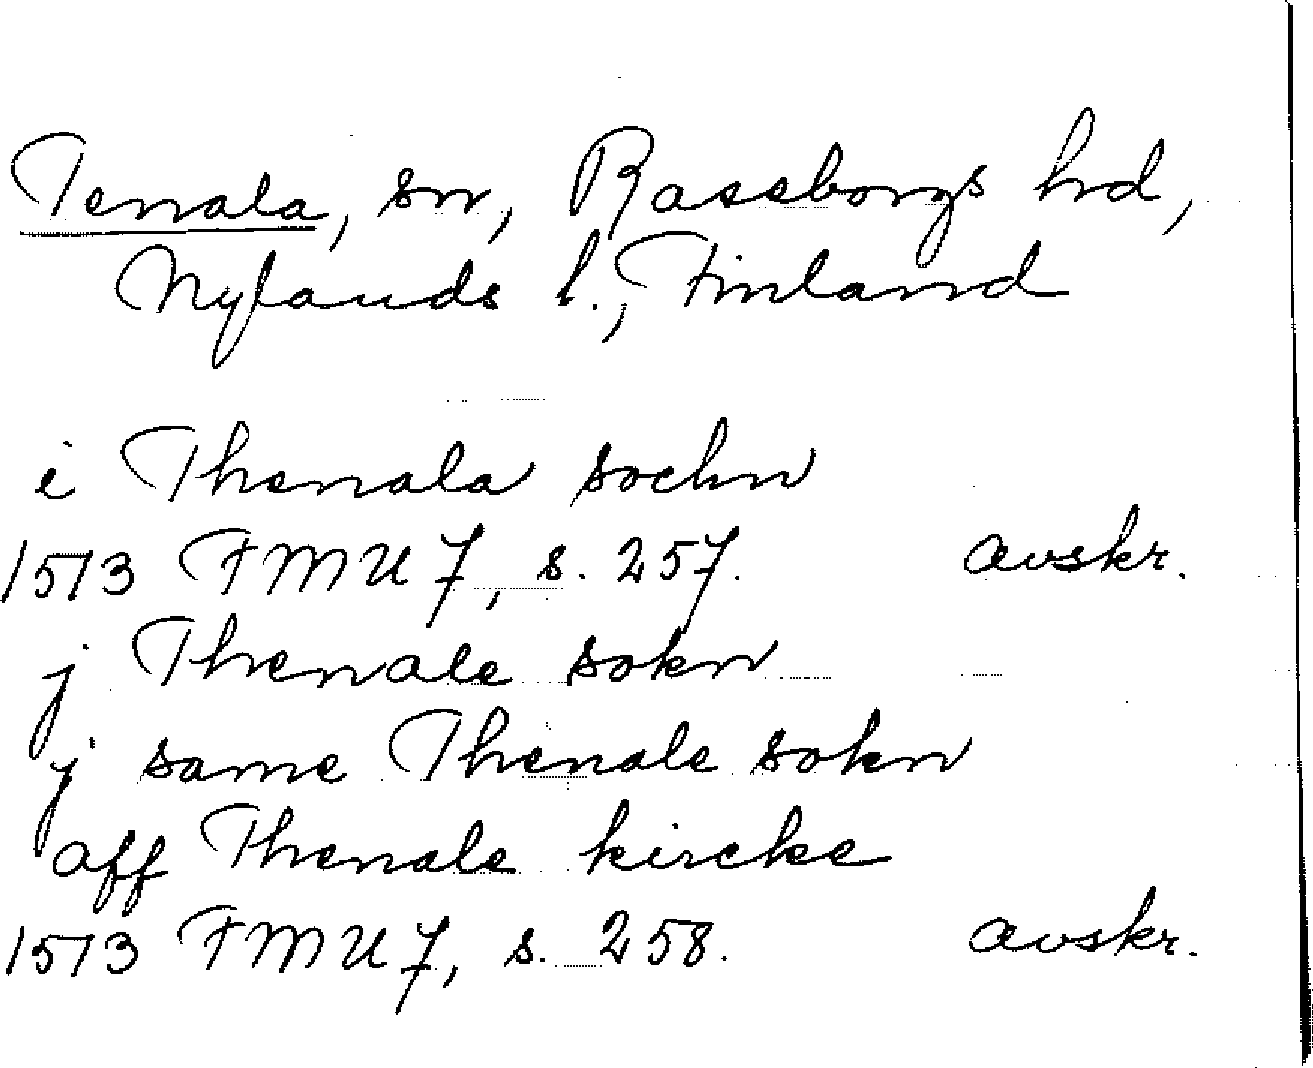 Tenala, sn, Raseborgs hd,
Nylands l., Finland
i Thenala sochn
1513 FMU 7, s. 257. avskr.
j Thenale sokn
j same Thenale sokn
aff Thenale kircke
1513 FMU 7, s. 258. avskr.